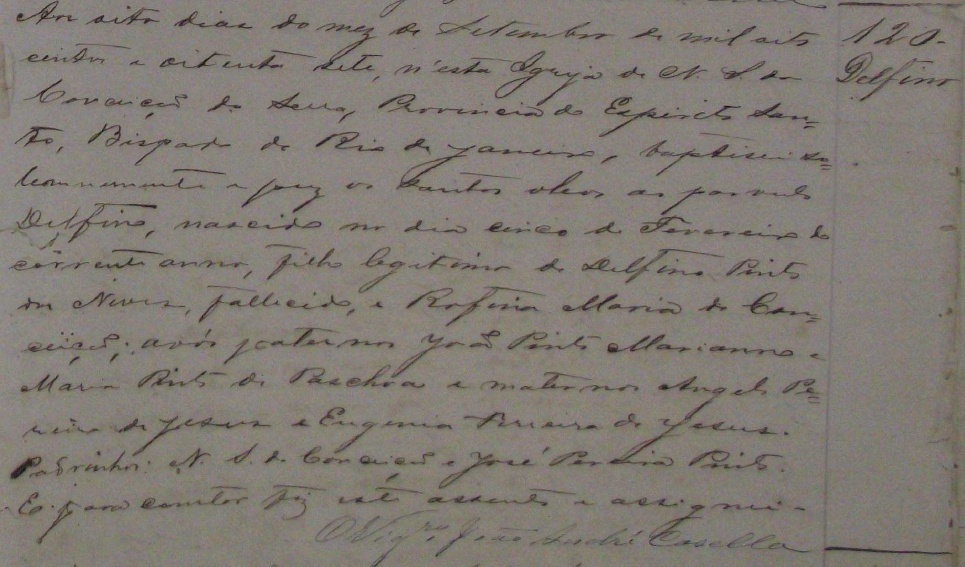 Aos oito dias do mez de Setembro de mil oito
centos e oitenta sete, n'esta Igreja de N. S. da
Conceição da Serra, Provincia do Espirito San=
to, Bispado do Rio de Janeiro, baptisei so=
lemnemente e puz os santos oleos ao parvulo
Delfino, nascido no dia cinco de Fevereiro do
corrente anno, filho legitimo de Delfino Pinto
das Neves, fallecido, e Rofina Maria da Con=
ceição; avós paternos João Pinto Marianno e
Maria Pinto da Paschoa e maternos Angelo Pe=
reira de Jesus e Eugenia Pereira de Jesus.
Padrinhos: N. S. da Conceição e José Pereira Pinto.
E para constar fiz este assento e assignei.
O Vigr.º João André Casella
120.
Delfino